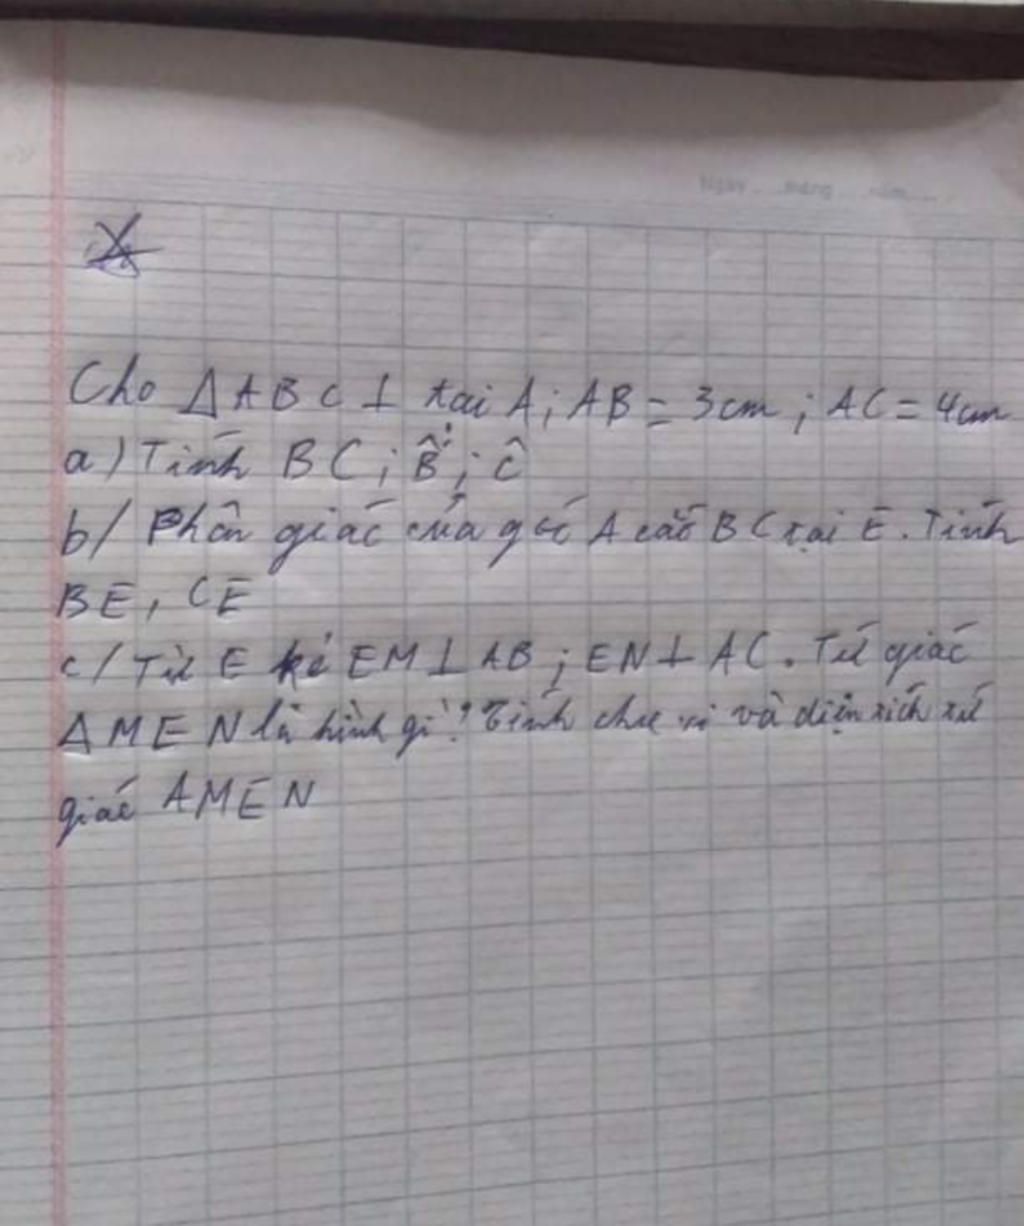 Ngày tháng năm
Cho ΔABC ⊥ tại A; AB = 3cm; AC = 4cm
a) Tính BC; B̂; Ĉ
b/ Phân giác của góc A cắt BC tại E. Tính
BE, CE
c/ Từ E kẻ EM ⊥ AB; EN ⊥ AC. Tứ giác
AMEN là hình gì? Tính chu vi và diện tích tứ
giác AMEN